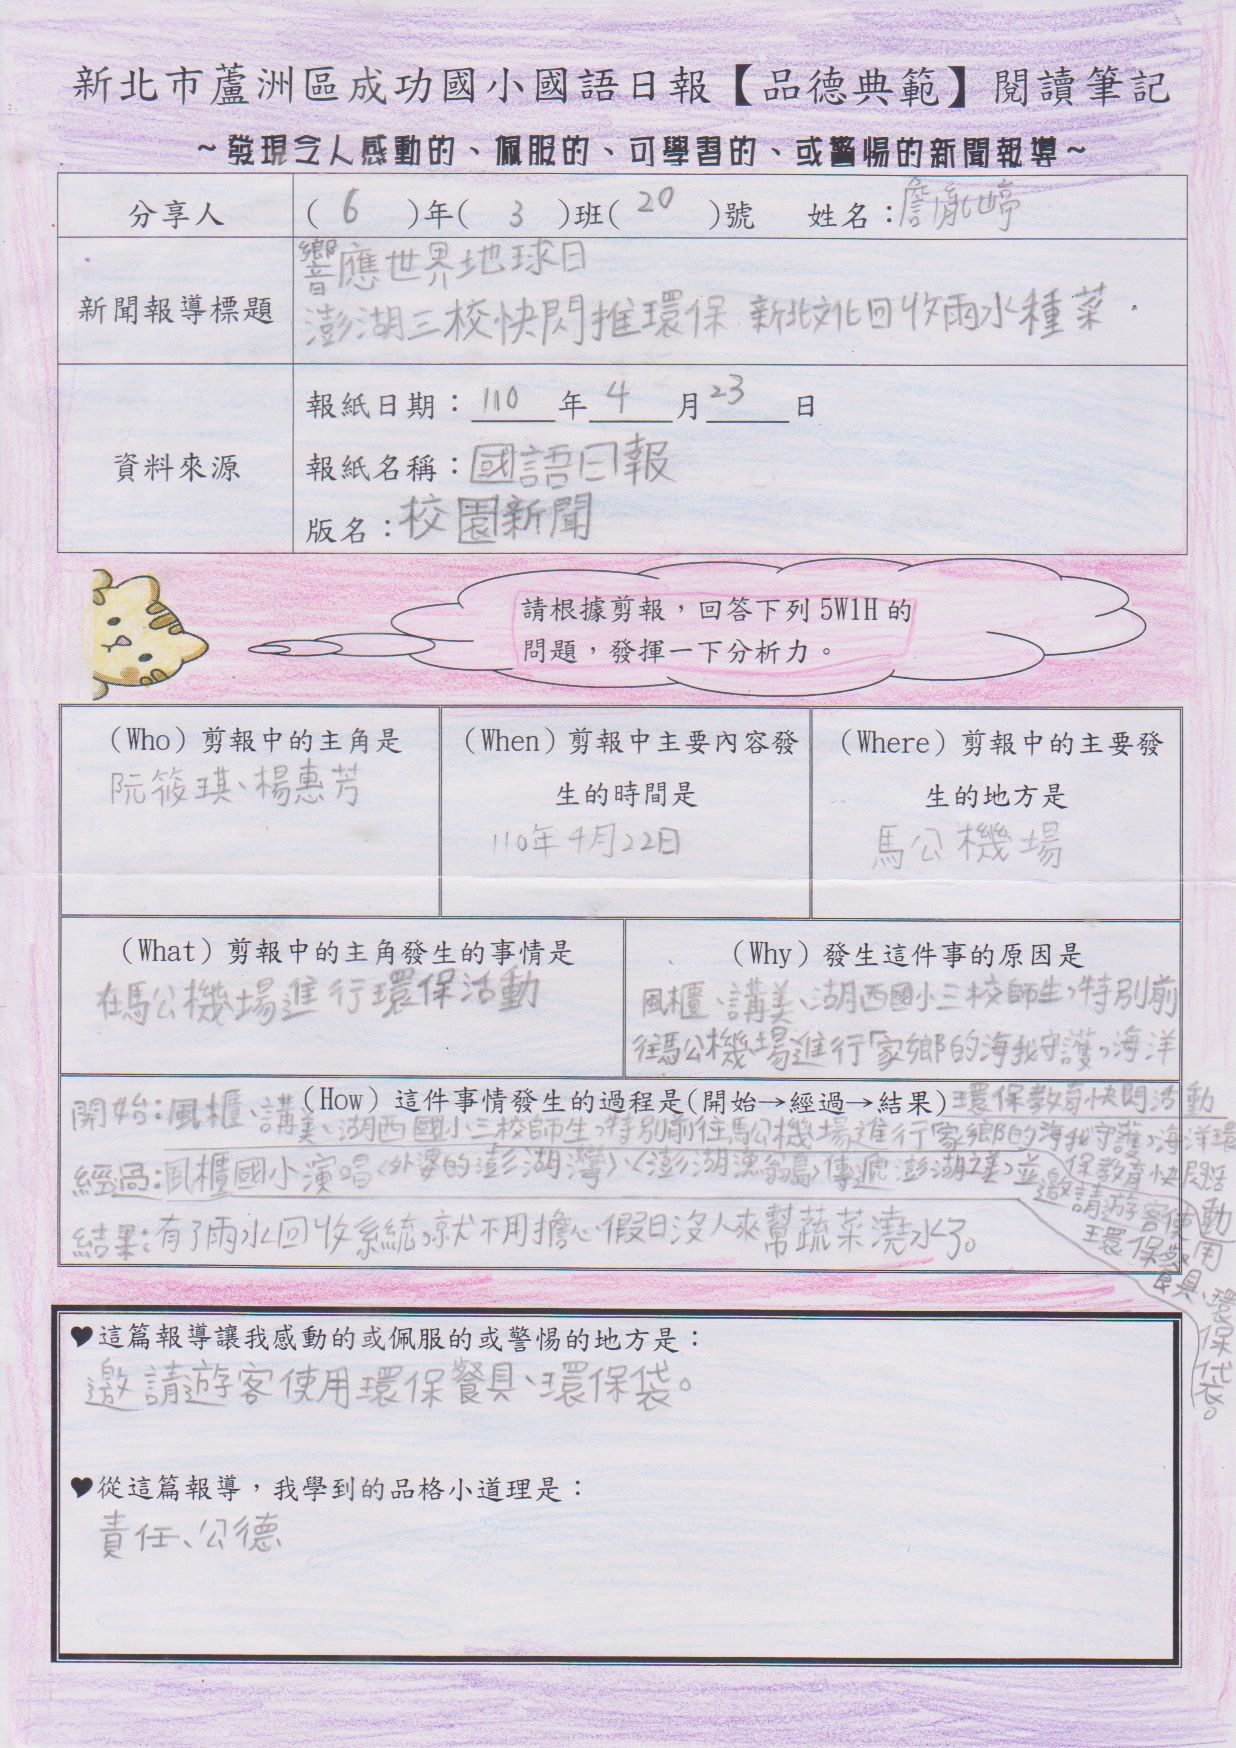 新北市蘆洲區成功國小國語日報【品德典範】閱讀筆記
~發現令人感動的、佩服的、可學習的、或警惕的新聞報導~
分享人
( 6 )年( 3 )班( 20 )號 姓名:詹胤婷
新聞報導標題
響應世界地球日
澎湖三校快閃推環保 新北文化回收雨水種菜
資料來源
報紙日期:110年4月23日
報紙名稱:國語日報
版名:校園新聞
請根據剪報,回答下列5W1H的
問題,發揮一下分析力。
(Who)剪報中的主角是
阮筱琪、楊惠芳
(When)剪報中主要內容發
生的時間是
110年4月22日
(Where)剪報中的主要發
生的地方是
馬公機場
(What)剪報中的主角發生的事情是
在馬公機場進行環保活動
(Why)發生這件事的原因是
風櫃、講美、湖西國小三校師生,特別前
往馬公機場進行「家鄉的海我守護,海洋
環保教育快閃活動
(How)這件事情發生的過程是(開始→經過→結果)
開始:風櫃、講美、湖西國小三校師生,特別前往馬公機場進行家鄉的海我守護,海洋環
保教育快閃活動
經過:風櫃國小演唱〈外婆的澎湖灣〉、〈澎湖漁翁島〉傳遞澎湖之美,並
邀請遊客使用
環保餐具、環保袋。
結果:有了雨水回收系統,就不用擔心假日沒人來幫蔬菜澆水了。
♥這篇報導讓我感動的或佩服的或警惕的地方是:
邀請遊客使用環保餐具、環保袋。
♥從這篇報導,我學到的品格小道理是:
責任、公德